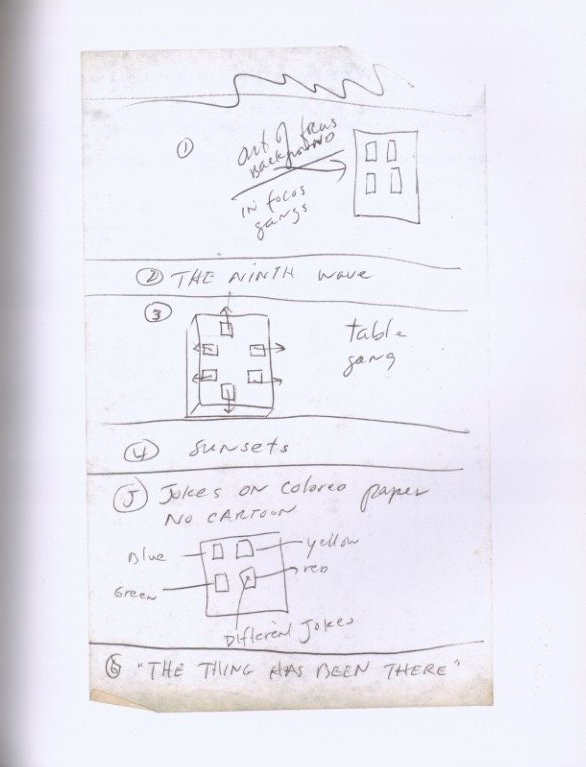 1
out of focus
BACKGROUND
IN FOCUS
gangs
2 THE NINTH wave
3
table
gang
4 SUNSETS
5 Jokes ON COLORED paper
NO CARTOON
Blue
yellow
Green
red
Different Jokes
6 "THE THING HAS BEEN THERE"